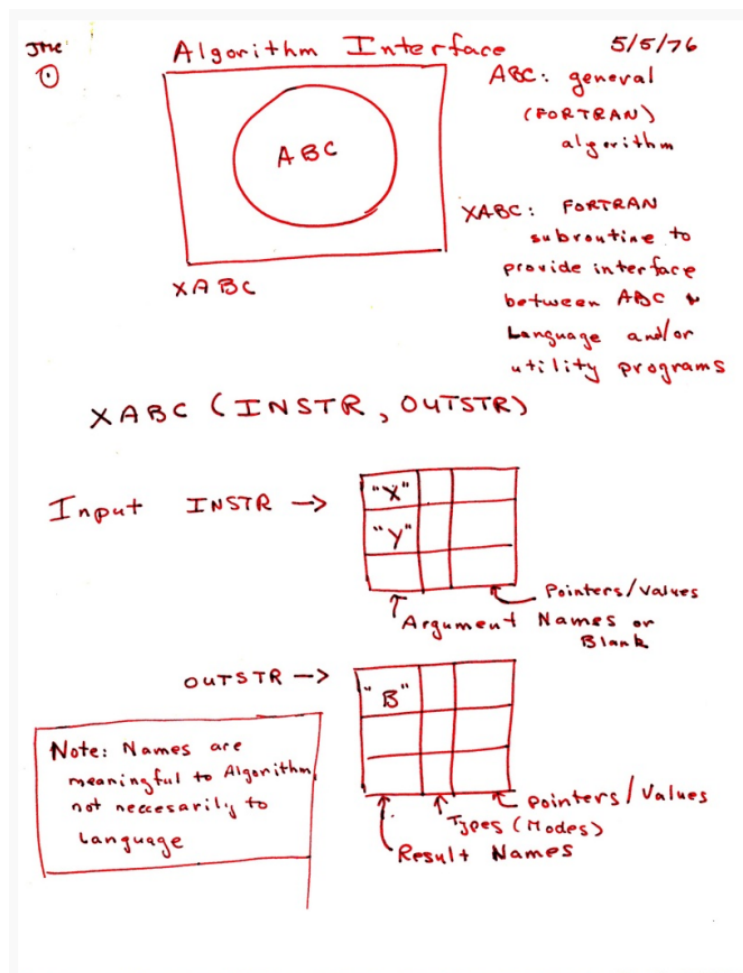 JMC
1
Algorithm Interface
5/5/76
ABC
XABC
ABC: general
(FORTRAN)
algorithm
XABC: FORTRAN
subroutine to
provide interface
between ABC &
Language and/or
utility programs
XABC (INSTR, OUTSTR)
Input INSTR →
"X"
"Y"
Pointers/Values
Argument Names or
Blank
OUTSTR →
"B"
Pointers/Values
Types (Modes)
Result Names
Note: Names are
meaningful to Algorithm,
not neccesarily to
Language